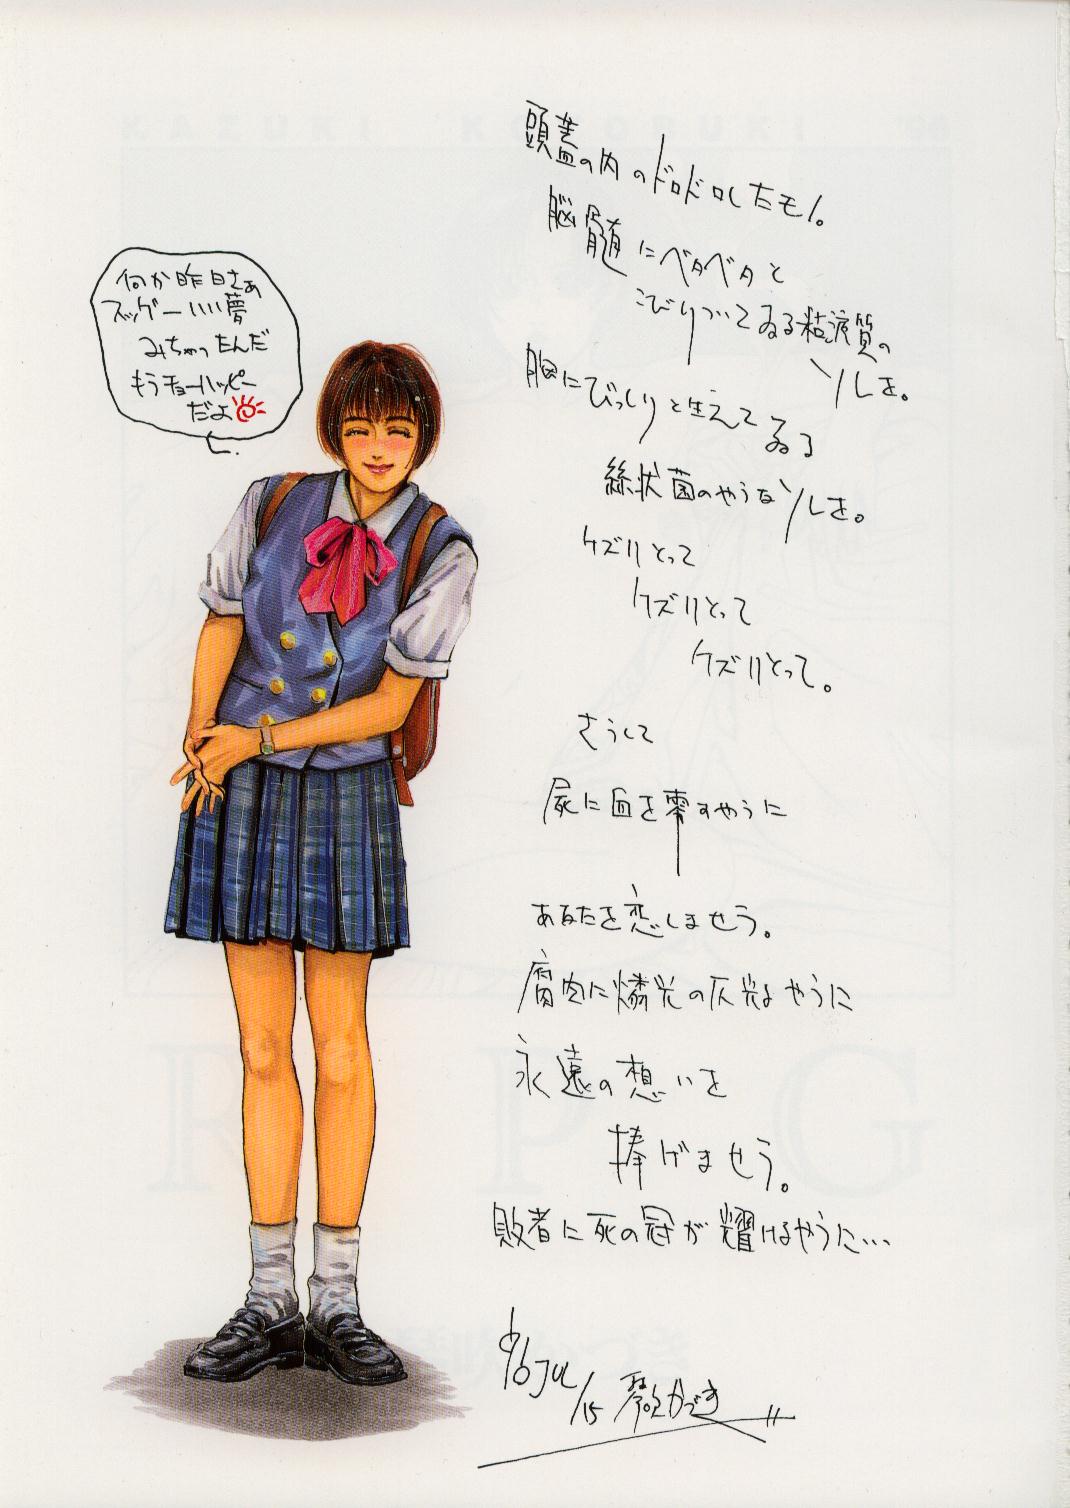 何か昨日さぁ
スッゲーいい夢
みちゃったんだ
もうチョーハッピー
だよ
頭蓋の内のドロドロしたモノ。
脳髄にベタベタと
こびりついてゐる粘液質の
ソレを。
胸にびっしりと生えてゐる
絲状菌のやうなソレを。
ケズリとって
ケズリとって
ケズリとって。
さうして
尻に血を零すやうに
あなたを恋しませう。
腐肉に燐光の灰光るやうに
永遠の想いを
捧げませう。
敗者に死の冠が耀けるやうに…
'96 JUL
/15 琴吹かづき
KAZUKI KOTOBUKI '96
RPG